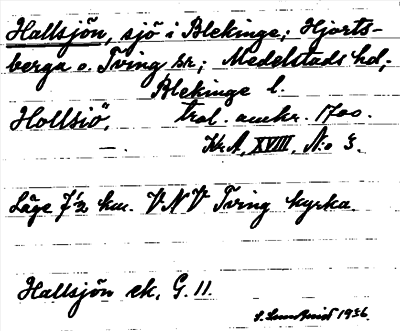 Hallsjön, sjö i Blekinge; Hjorts-
berga o. Tving sr; Medelstads hd;
Blekinge l.
Hollsiö, trol. omkr. 1700.
—. Kr A, XVIII, No 3.
Läge 7½ km. VNV Tving kyrka.
Hallsjön ek. G. 11.
1936.